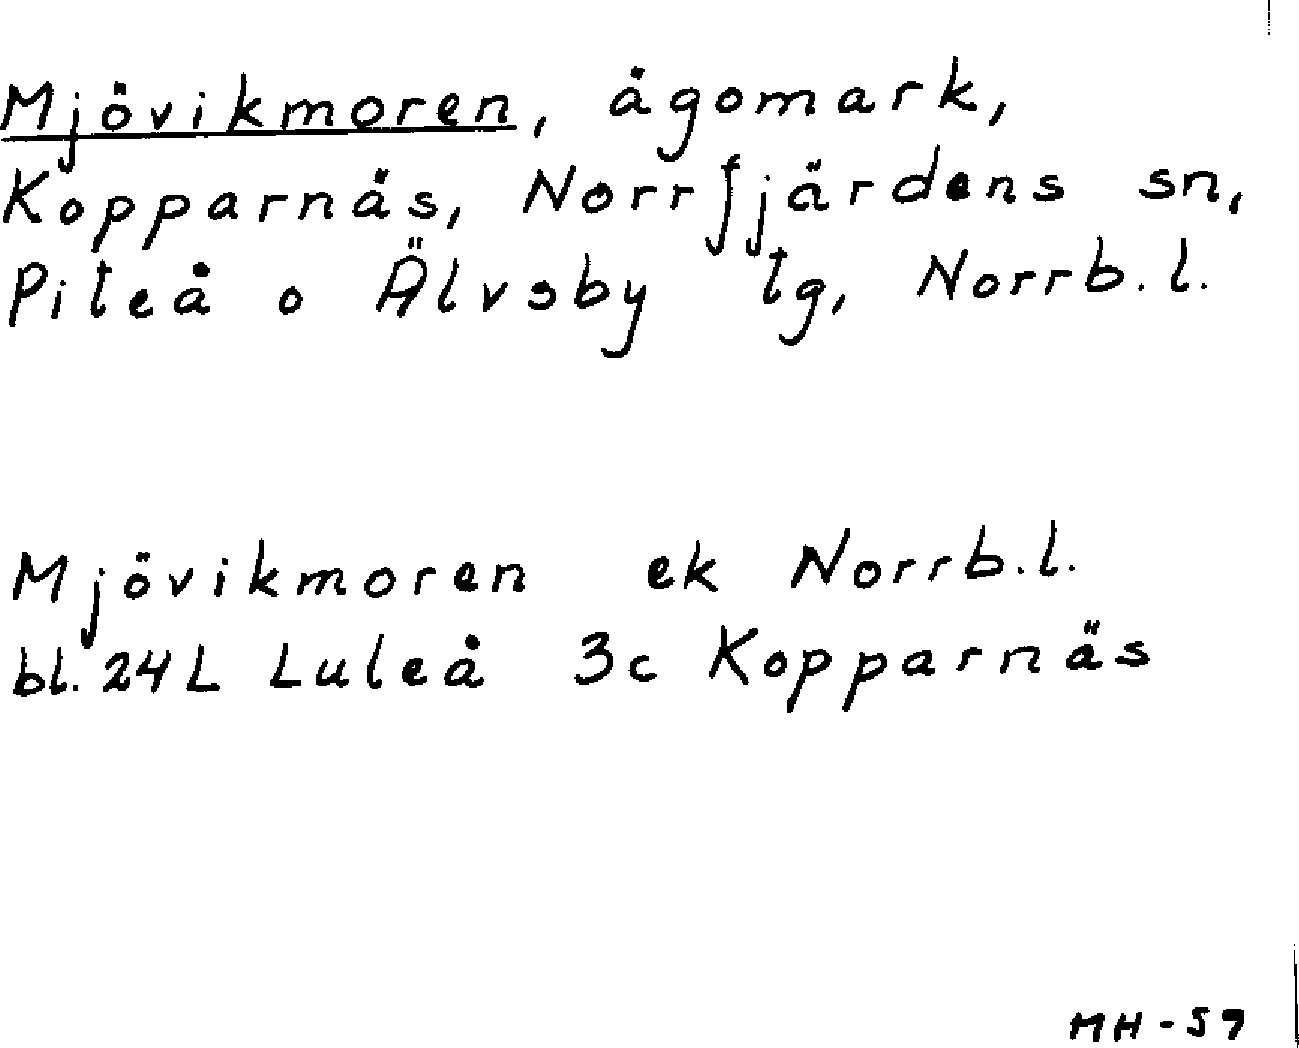 Mjövikmoren, ägomark,
Kopparnäs, Norrfjärdens sn,
Piteå o Älvsby tg, Norrb.l.
Mjövikmoren ek Norrb.l.
bl. 24L Luleå 3c Kopparnäs
MH-59